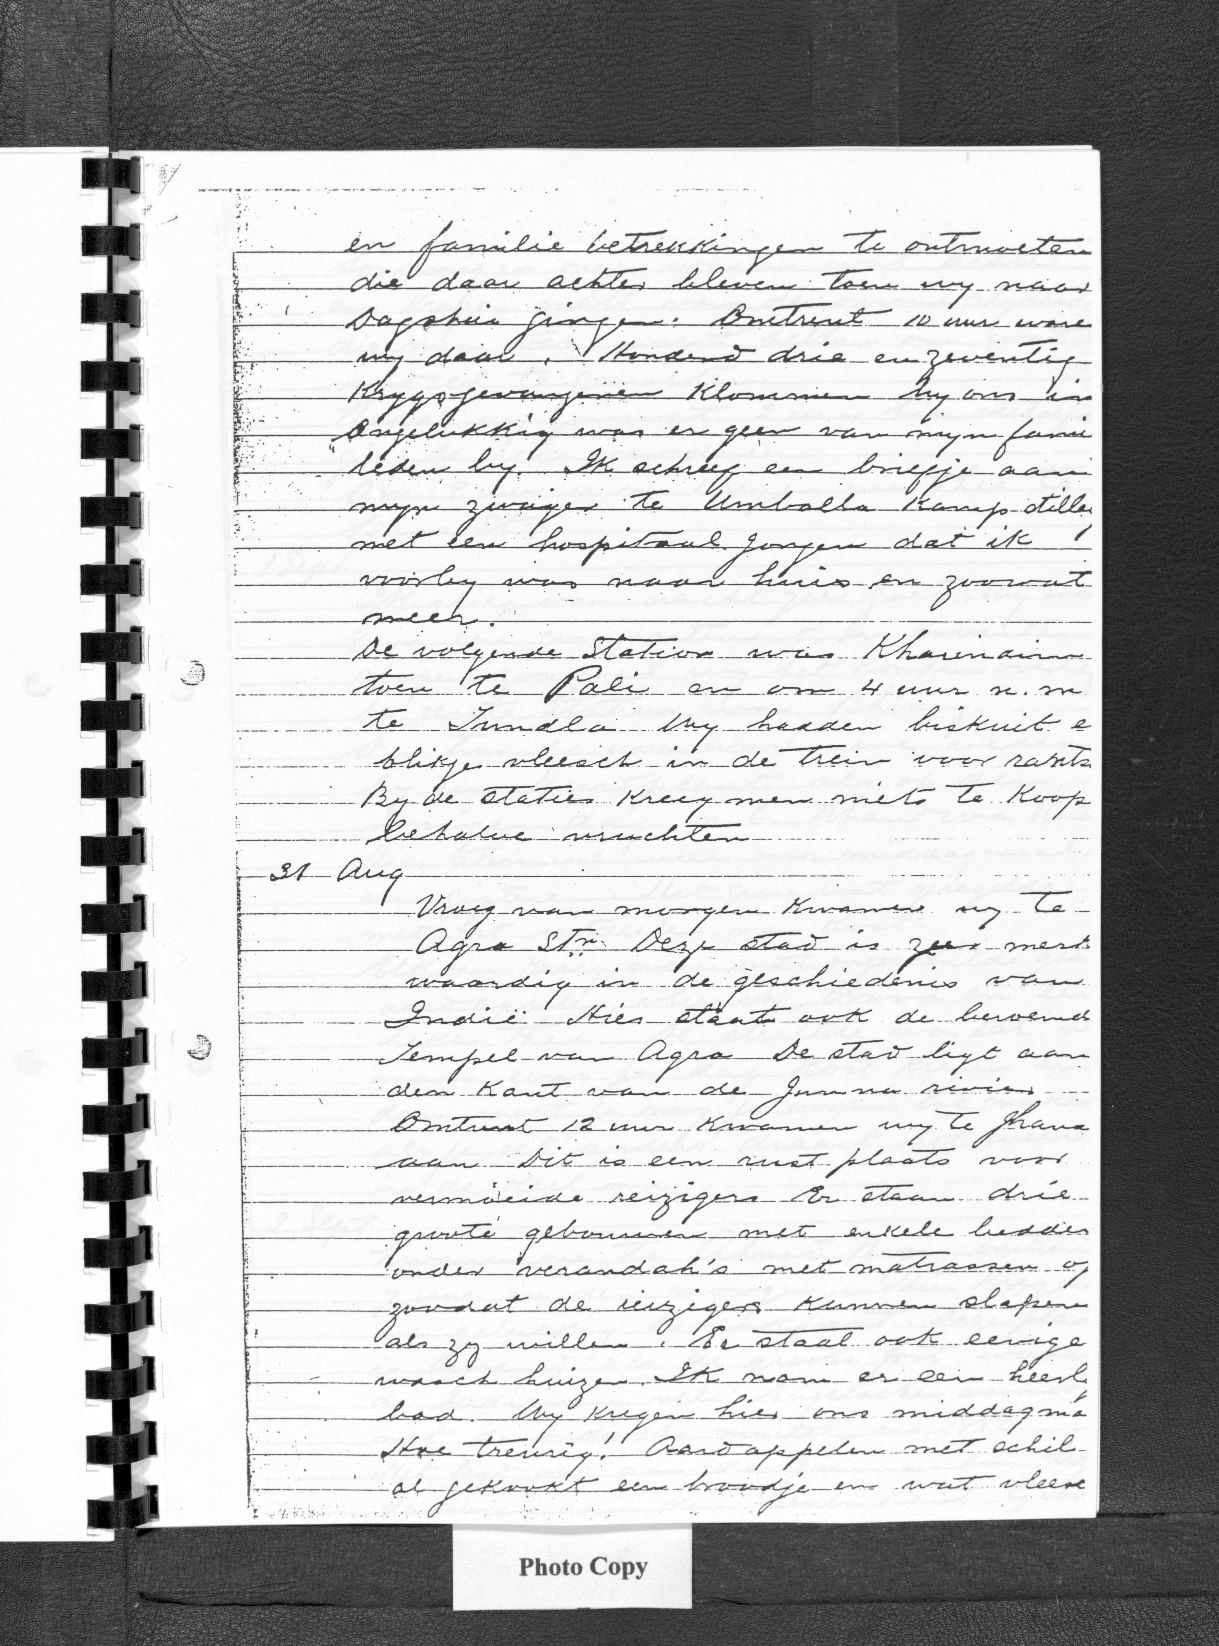 en familie betrekkingen te ontmoeten
die daar achter bleven toen wy naar
Dagshai gingen. Omtrent 10 uur ware
wy daar. Honderd drie en zeventig
Krygsgevangenen Klommen by ons in
Ongelukkig was er geen van myn fami
leden by. Ik schreef een briefje aan
myn zwager te Umballa Kamp
met een hospitaal jongen dat ik
voorby was naar huis en zoowat
meer.
De volgende Station was
toen te Pali en om 4 uur n.m
te Tundla Wy hadden biskuit e
blikje vleesch in de trein voor
By de staties kreeg men niets te Koop
behalve vruchten
31 Aug
Vroeg van morgen Kwamen wy te
Agra Stn. Deze stad is zeer merk
waardig in de geschiedenis van
Indië Hier staat ook de beroemd
Tempel van Agra De stad ligt aan
den Kant van de Jumna rivier
Omtrent 12 uur Kwamen wy te Jhans
aan Dit is een rust plaats voor
vermoeide reizigers Er staan drie
groote gebouwen met enkele bedden
onder verandah's met matrassen op
zoodat de reizigers Kunnen slapen
als zy willen. Er staat ook eenige
wasch huizen. Ik nam er een heerl
bad. Wy kregen hier ons middagma
Hoe treurig! Aardappelen met schil
al gekookt een broodje en wat vleesc
Photo Copy